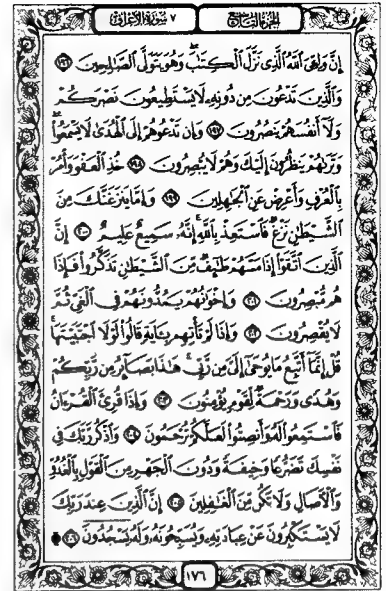 الجزء التاسع
٧ سورة الأعراف
إِنَّ وَلِـِّىَ ٱللَّهُ ٱلَّذِى نَزَّلَ ٱلْكِتَٰبَ وَهُوَ يَتَوَلَّى ٱلصَّٰلِحِينَ ١٩٦
وَٱلَّذِينَ تَدْعُونَ مِن دُونِهِۦ لَا يَسْتَطِيعُونَ نَصْرَكُمْ
وَلَآ أَنفُسَهُمْ يَنصُرُونَ ١٩٧ وَإِن تَدْعُوهُمْ إِلَى ٱلْهُدَىٰ لَا يَسْمَعُوا۟
وَتَرَىٰهُمْ يَنظُرُونَ إِلَيْكَ وَهُمْ لَا يُبْصِرُونَ ١٩٨ خُذِ ٱلْعَفْوَ وَأْمُرْ
بِٱلْعُرْفِ وَأَعْرِضْ عَنِ ٱلْجَٰهِلِينَ ١٩٩ وَإِمَّا يَنزَغَنَّكَ مِنَ
ٱلشَّيْطَٰنِ نَزْغٌ فَٱسْتَعِذْ بِٱللَّهِ إِنَّهُۥ سَمِيعٌ عَلِيمٌ ٢٠٠ إِنَّ
ٱلَّذِينَ ٱتَّقَوْا۟ إِذَا مَسَّهُمْ طَٰٓئِفٌ مِّنَ ٱلشَّيْطَٰنِ تَذَكَّرُوا۟ فَإِذَا
هُم مُّبْصِرُونَ ٢٠١ وَإِخْوَٰنُهُمْ يَمُدُّونَهُمْ فِى ٱلْغَىِّ ثُمَّ
لَا يُقْصِرُونَ ٢٠٢ وَإِذَا لَمْ تَأْتِهِم بِـَٔايَةٍ قَالُوا۟ لَوْلَا ٱجْتَبَيْتَهَا
قُلْ إِنَّمَآ أَتَّبِعُ مَا يُوحَىٰٓ إِلَىَّ مِن رَّبِّى هَٰذَا بَصَآئِرُ مِن رَّبِّكُمْ
وَهُدًى وَرَحْمَةٌ لِّقَوْمٍ يُؤْمِنُونَ ٢٠٣ وَإِذَا قُرِئَ ٱلْقُرْءَانُ
فَٱسْتَمِعُوا۟ لَهُۥ وَأَنصِتُوا۟ لَعَلَّكُمْ تُرْحَمُونَ ٢٠٤ وَٱذْكُر رَّبَّكَ فِى
نَفْسِكَ تَضَرُّعًا وَخِيفَةً وَدُونَ ٱلْجَهْرِ مِنَ ٱلْقَوْلِ بِٱلْغُدُوِّ
وَٱلْـَٔاصَالِ وَلَا تَكُن مِّنَ ٱلْغَٰفِلِينَ ٢٠٥ إِنَّ ٱلَّذِينَ عِندَ رَبِّكَ
لَا يَسْتَكْبِرُونَ عَنْ عِبَادَتِهِۦ وَيُسَبِّحُونَهُۥ وَلَهُۥ يَسْجُدُونَ ٢٠٦
١٧٦